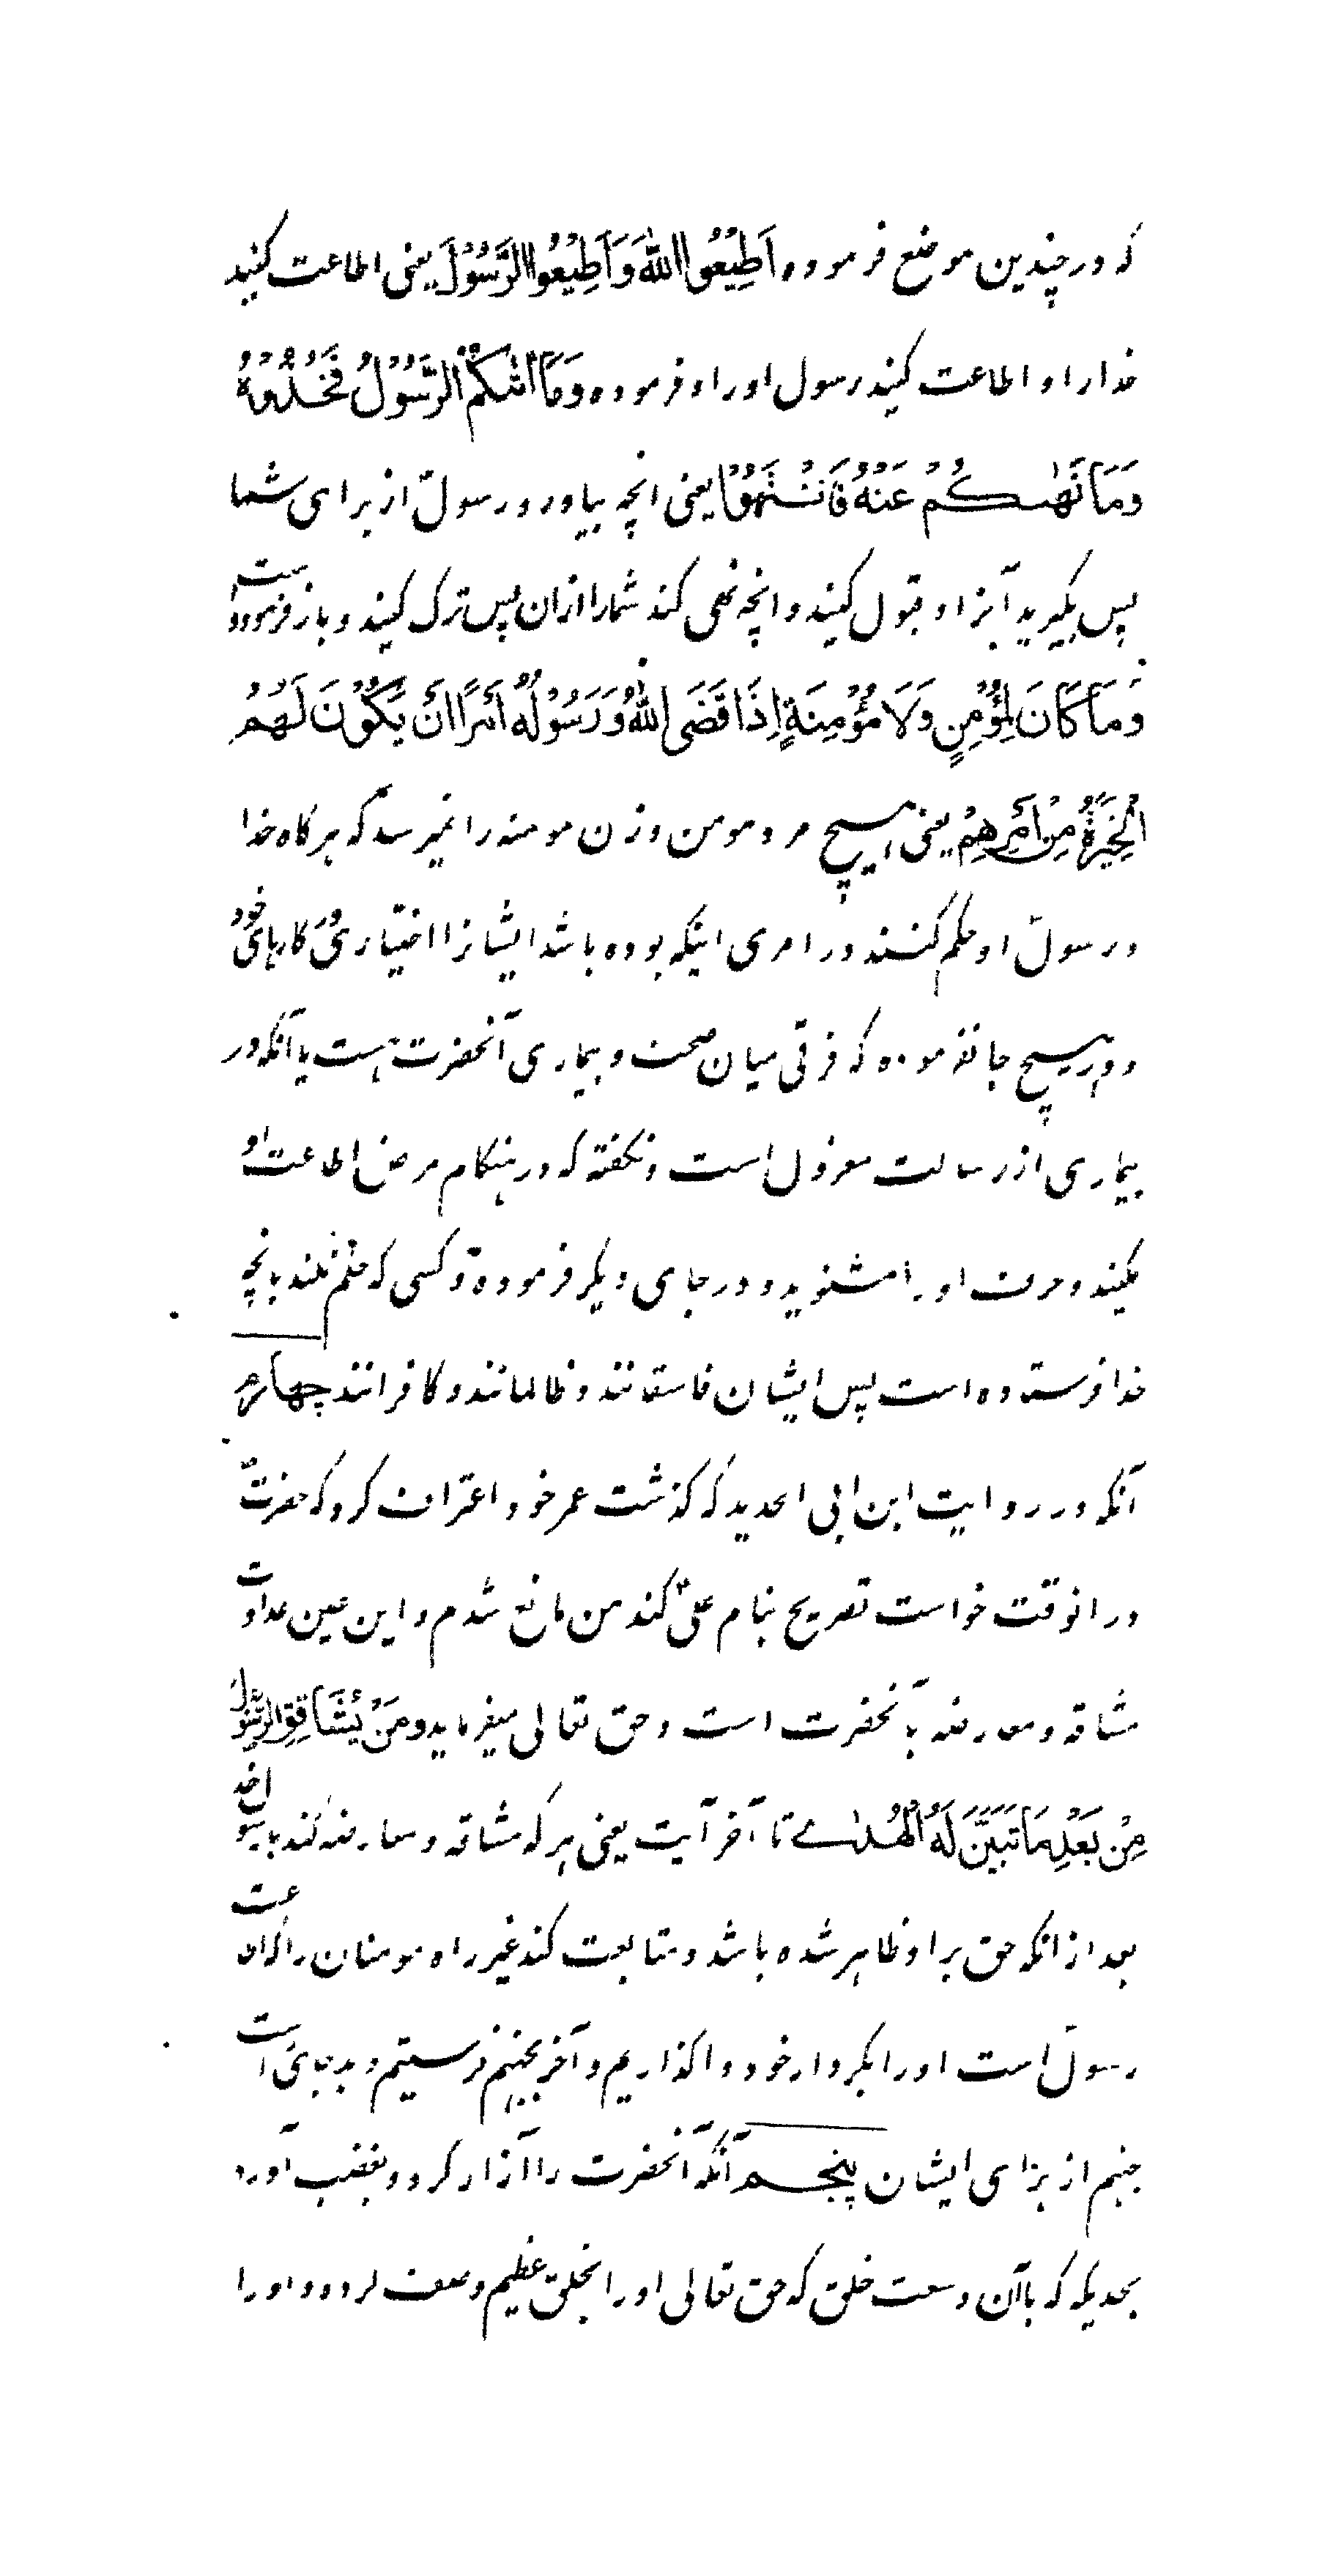 که در چندین موضع فرموده اَطِیْعُوا اللهَ وَ اَطِیْعُوا الرَّسُوْلَ یعنی اطاعت کنید
خدا را و اطاعت کنید رسول او را و فرموده وَمَا اٰتٰکُمُ الرَّسُوْلُ فَخُذُوْهُ
وَمَا نَهٰىکُمْ عَنْهُ فَانْتَهُوْا یعنی انچه بیاورد رسولؐ از برای شما
پس بگیرید آنرا و قبول کنید و انچه نهی کند شما را ازان پس ترک کنید و باز فرموده است
وَمَا کَانَ لِمُؤْمِنٍ وَلَا مُؤْمِنَةٍ اِذَا قَضَی اللهُ وَرَسُوْلُهٗ اَمْرًا اَنْ یَکُوْنَ لَهُمُ
الْخِیَرَةُ مِنْ اَمْرِهِمْ یعنی هیچ مرد مومن و زن مومنه را نمیرسد که هرگاه خدا
و رسولؐ او حکم کنند در امری اینکه بوده باشد ایشانرا اختیاری در کارهای خود
و در هیچ جا نفرموده که فرقی میان صحت و بیماری آنحضرت هست یا آنکه در
بیماری از رسالت معزول است و نگفته که در هنگام مرض اطاعت او
مکنید و حرف او را مشنوید و در جای دیگر فرموده و کسی که حکم نکند بانچه
خدا فرستاده است پس ایشان فاسقانند و ظالمانند و کافرانند چهارم
آنکه در روایت ابن ابی الحدید که گذشت عمر خود اعتراف کرد که حضرتؐ
در انوقت خواست تصریح بنام علیؑ کند من مانع شدم و این عین عداوت
مشاقه و معارضه بآنحضرت است و حق تعالی میفرماید وَمَنْ یُشَاقِقِ الرَّسُوْلَ
مِنْ بَعْدِ مَا تَبَیَّنَ لَهُ الْهُدٰے تا آخر آیت یعنی هر که مشاقه و معارضه کند با رسول خدا
بعد از انکه حق بر او ظاهر شده باشد و متابعت کند غیر راه مومنان را که اطاعت
رسولؐ است او را بکردار خود واگذاریم و آخر بجهنم فرستیم و بد جائی است
جهنم از برای ایشان پنجم آنکه آنحضرت را آزار کرد و بغضب آورد
بحدیکه که باآن وسعت خلق که حق تعالی او را بخلق عظیم وصف کرده و او را